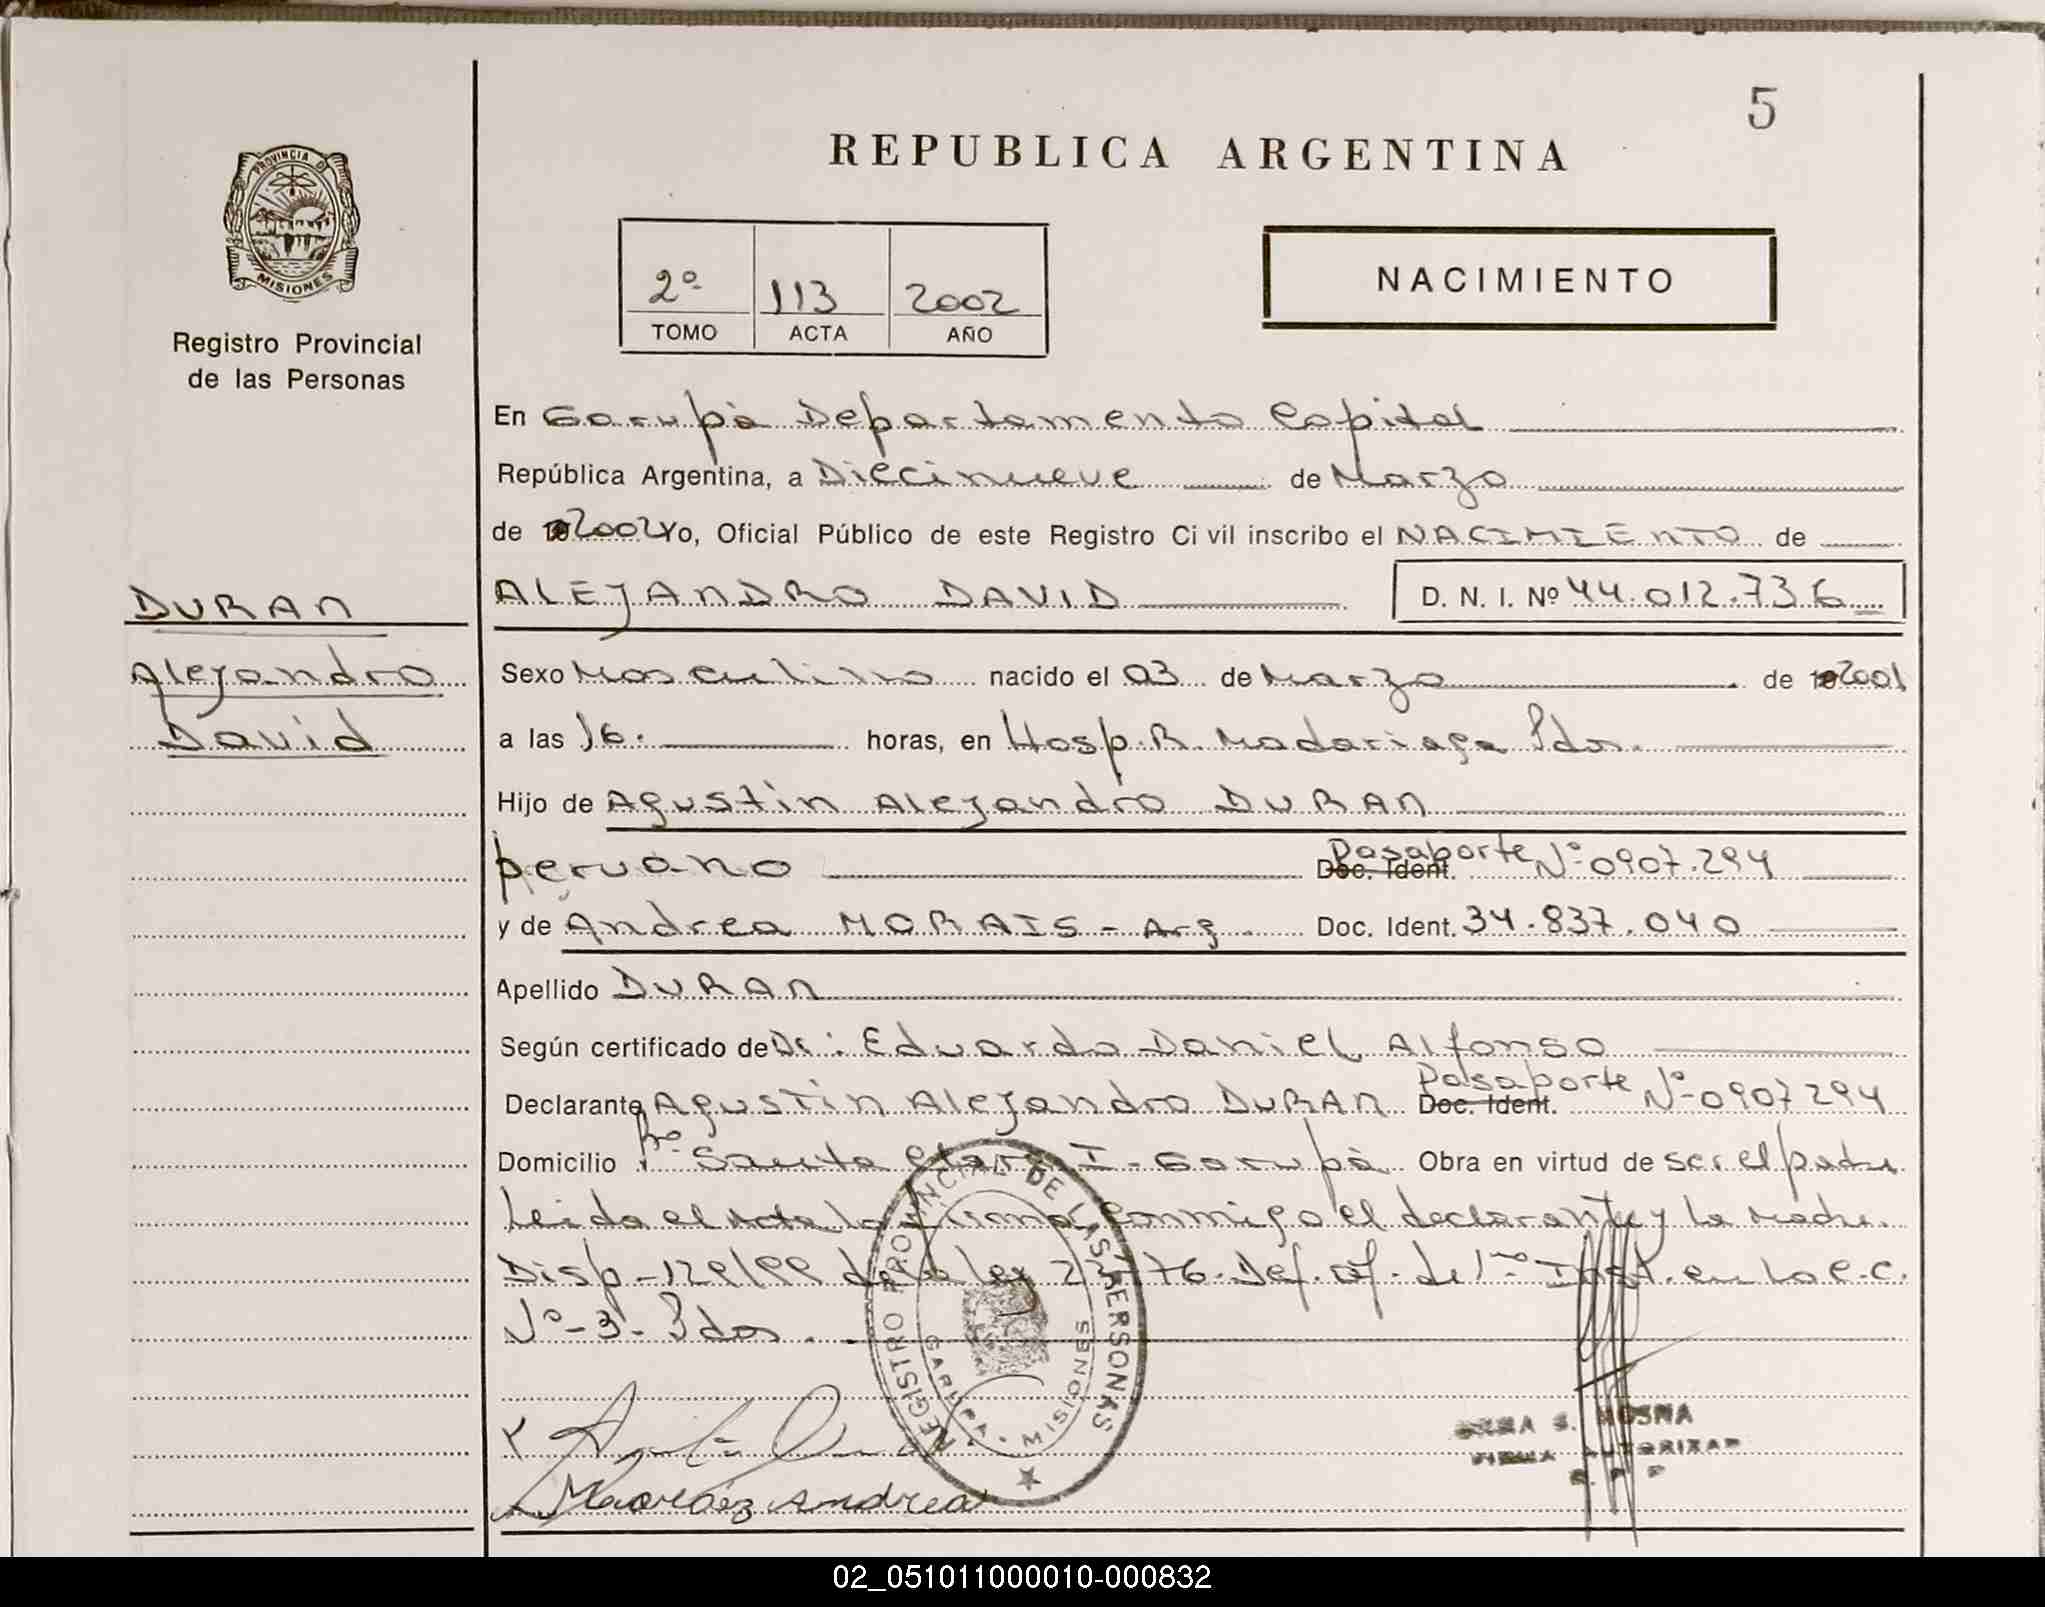 5
REPUBLICA ARGENTINA
PROVINCIA DE
MISIONES
Registro Provincial
de las Personas
2º 113 2002
TOMO ACTA AÑO
NACIMIENTO
En Garupà Departamento Capital
República Argentina, a Diecinueve de Marzo
de 2002 Yo, Oficial Público de este Registro Civil inscribo el NACIMIENTO de
DURAN
ALEJANDRO DAVID D. N. I. Nº 44.012.736
Alejandro
David
Sexo Masculino nacido el 03 de Marzo de 2001
a las 16. horas, en Hosp. R. Madariaga Pdas.
Hijo de Agustin Alejandro DURAN
peruano Doc. Ident. Pasaporte Nº 0907.294
y de Andrea MORAIS - Arg. Doc. Ident. 34.837.040
Apellido DURAN
Según certificado de Dr: Eduardo Daniel Alfonso
Declarante Agustin Alejandro DURAN Doc. Ident. Pasaporte Nº 0907294
Domicilio Bº Santa Clara I - Garupà Obra en virtud de ser el padre
Leida el acta la firma conmigo el declarante y la Madre.
Disp - 129/99 de la ley Def. of. de 1ra Inst. en lo C.C.
Nº - 3 - Pdas.
REGISTRO PROVINCIAL DE LAS PERSONAS
GARUPA - MISIONES
Andrea
S. MOSNA
02_051011000010-000832